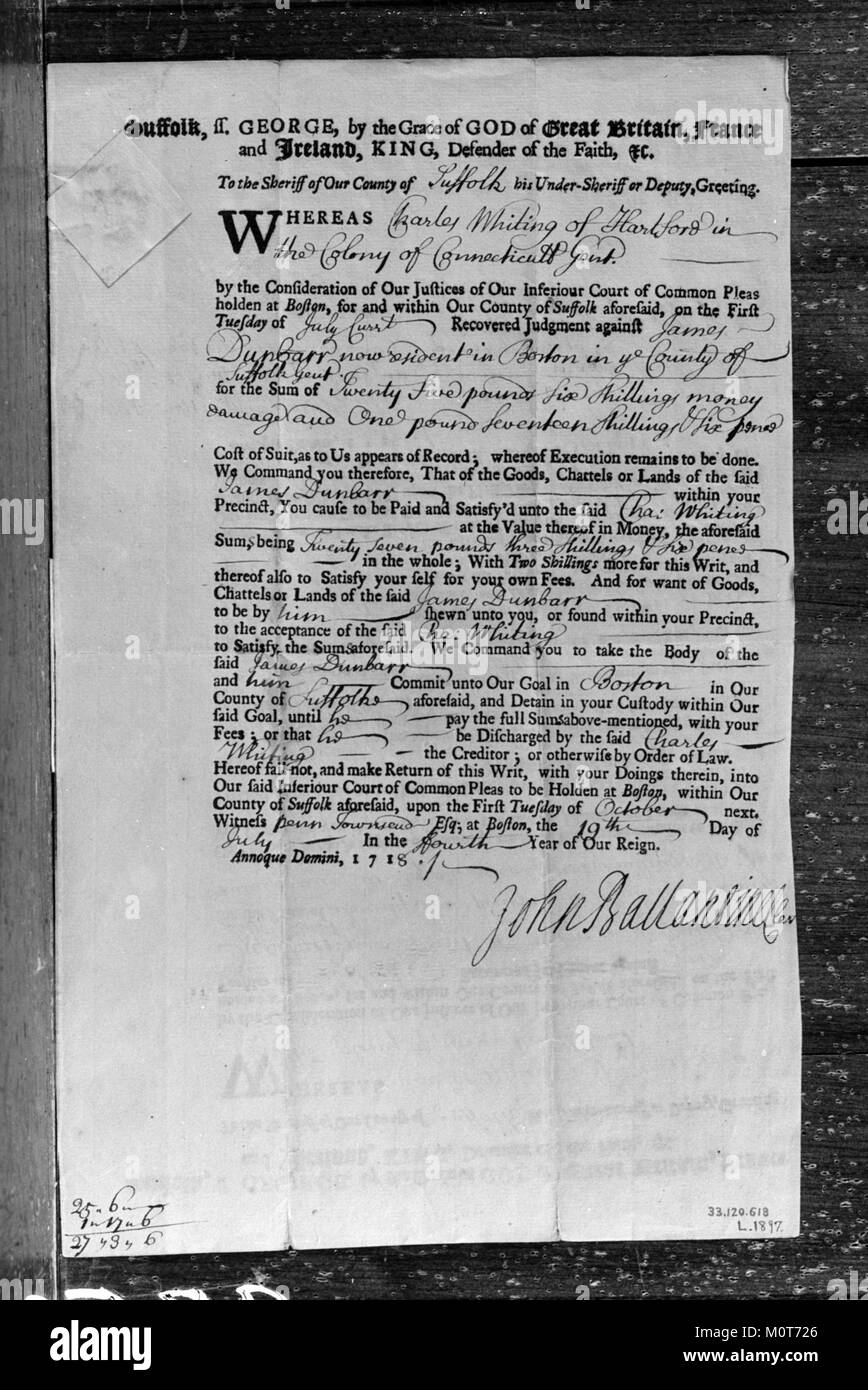 Suffolk, ſſ. GEORGE, by the Grace of GOD of Great Britain, France
and Ireland, KING, Defender of the Faith, &c.
To the Sheriff of Our County of Suffolk his Under-Sheriff or Deputy, Greeting.
WHEREAS Charles Whiting of Hartford in
the Colony of Connecticutt Gent.
by the Conſideration of Our Juſtices of Our Inferiour Court of Common Pleas
holden at Boſton, for and within Our County of Suffolk aforeſaid, on the Firſt
Tueſday of July Currt Recovered Judgment againſt James
Dunbarr now resident in Boston in ye County of
Suffolk Gent.
for the Sum of Twenty Five pounds Six Shillings money
damage and One pound Seventeen Shillings & Six pence
Coſt of Suit, as to Us appears of Record; whereof Execution remains to be done.
We Command you therefore, That of the Goods, Chattels or Lands of the ſaid
James Dunbarr within your
Precinct, You cauſe to be Paid and Satisfy'd unto the ſaid Cha: Whiting
at the Value thereof in Money, the aforeſaid
Sums being Twenty Seven pounds three Shillings & Six pence
in the whole; With Two Shillings more for this Writ, and
thereof alſo to Satisfy your ſelf for your own Fees. And for want of Goods,
Chattels or Lands of the ſaid James Dunbarr
to be by him ſhewn unto you, or found within your Precinct,
to the acceptance of the ſaid Cha: Whiting
to Satisfy the Sums aforeſaid. We Command you to take the Body of the
ſaid James Dunbarr
and him Commit unto Our Goal in Boston in Our
County of Suffolke aforeſaid, and Detain in your Cuſtody within Our
ſaid Goal, until he pay the full Sums above-mentioned, with your
Fees; or that he be Diſcharged by the ſaid Charles
Whiting the Creditor; or otherwiſe by Order of Law.
Hereof fail not, and make Return of this Writ, with your Doings therein, into
Our ſaid Inferiour Court of Common Pleas to be Holden at Boſton, within Our
County of Suffolk aforeſaid, upon the Firſt Tueſday of October next.
Witneſs Penn Townsend Eſq; at Boſton, the 19th Day of
July In the Fourth Year of Our Reign.
Annoque Domini, 1718.
John Ballantine Cler
25 " 6 "
1 " 17 " 6
27 " 3 " 6
33.120.618
L.1897
alamy
Image ID: M0T726
www.alamy.com